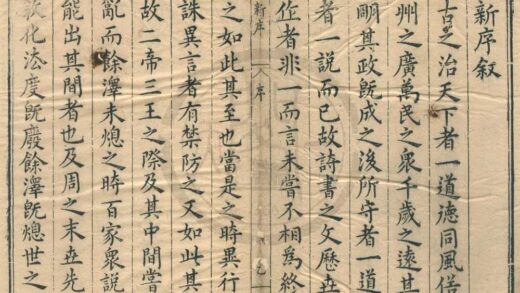 新序叙
古之治天下者一道德同風俗
州之廣萬民之衆千歲之遠其
明其政既成之後所守者一道
者一說而已故詩書之文歷世
作者非一而言未嘗不相為終
新序 序
之如此其至也當是之時異行
誅異言者有禁防之又如此其
故二帝三王之際及其中間嘗
亂而餘澤未熄之時百家衆說
能出其間者也及周之末世先
教化法度既廢餘澤既熄世之